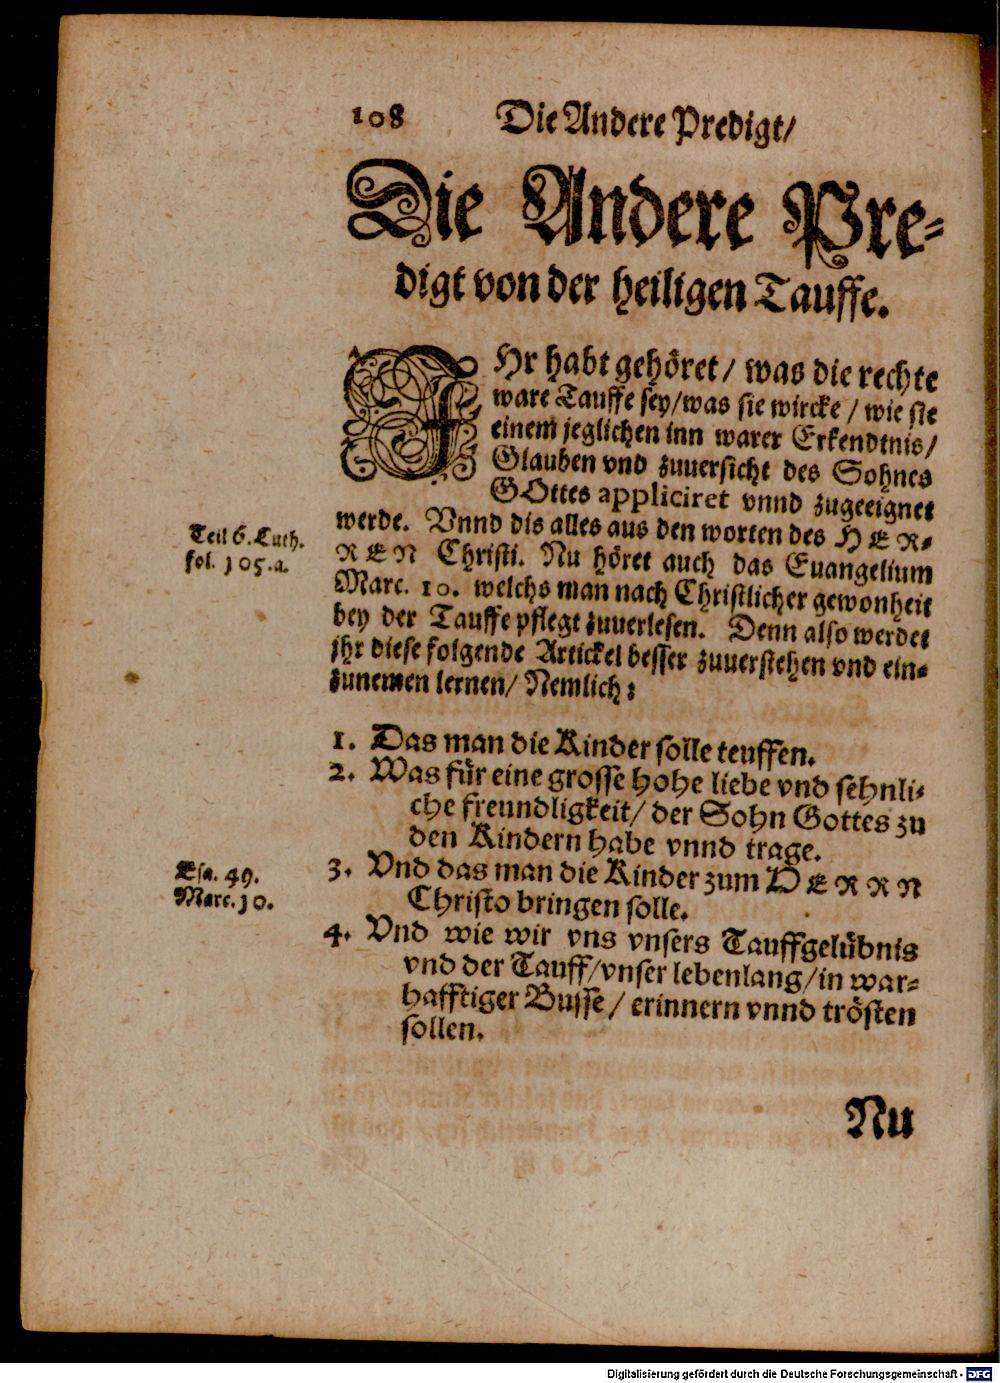 108 Die Andere Predigt/
Die Andere Pre-
digt von der heiligen Tauffe.
IHr habt gehöret/ was die rechte
ware Tauffe sey/was sie wircke / wie sie
einem jeglichen inn warer Erkendtnis/
Glauben vnd zuuersicht des Sohnes
GOttes appliciret vnnd zugeeignet
werde. Vnnd dis alles aus den worten des HER-
REN Christi. Nu höret auch das Euangelium
Marc. 10. welchs man nach Christlicher gewonheit
bey der Tauffe pflegt zuuerlesen. Denn also werdet
jhr diese folgende Artickel besser zuuerstehen vnd ein-
zunemen lernen/ Nemlich:
Teil 6. Luth.
fol. 105.a.
1. Das man die Kinder solle teuffen.
2. Was für eine grosse hohe liebe vnd sehnli-
che freundligkeit/ der Sohn Gottes zu
den Kindern habe vnnd trage.
3. Vnd das man die Kinder zum HERRN
Christo bringen solle.
Esa. 49.
Marc. 10.
4. Vnd wie wir vns vnsers Tauffgelübnis
vnd der Tauff/vnser lebenlang/in war-
hafftiger Busse/ erinnern vnnd trösten
sollen.
Nu
Digitalisierung gefördert durch die Deutsche Forschungsgemeinschaft - DFG